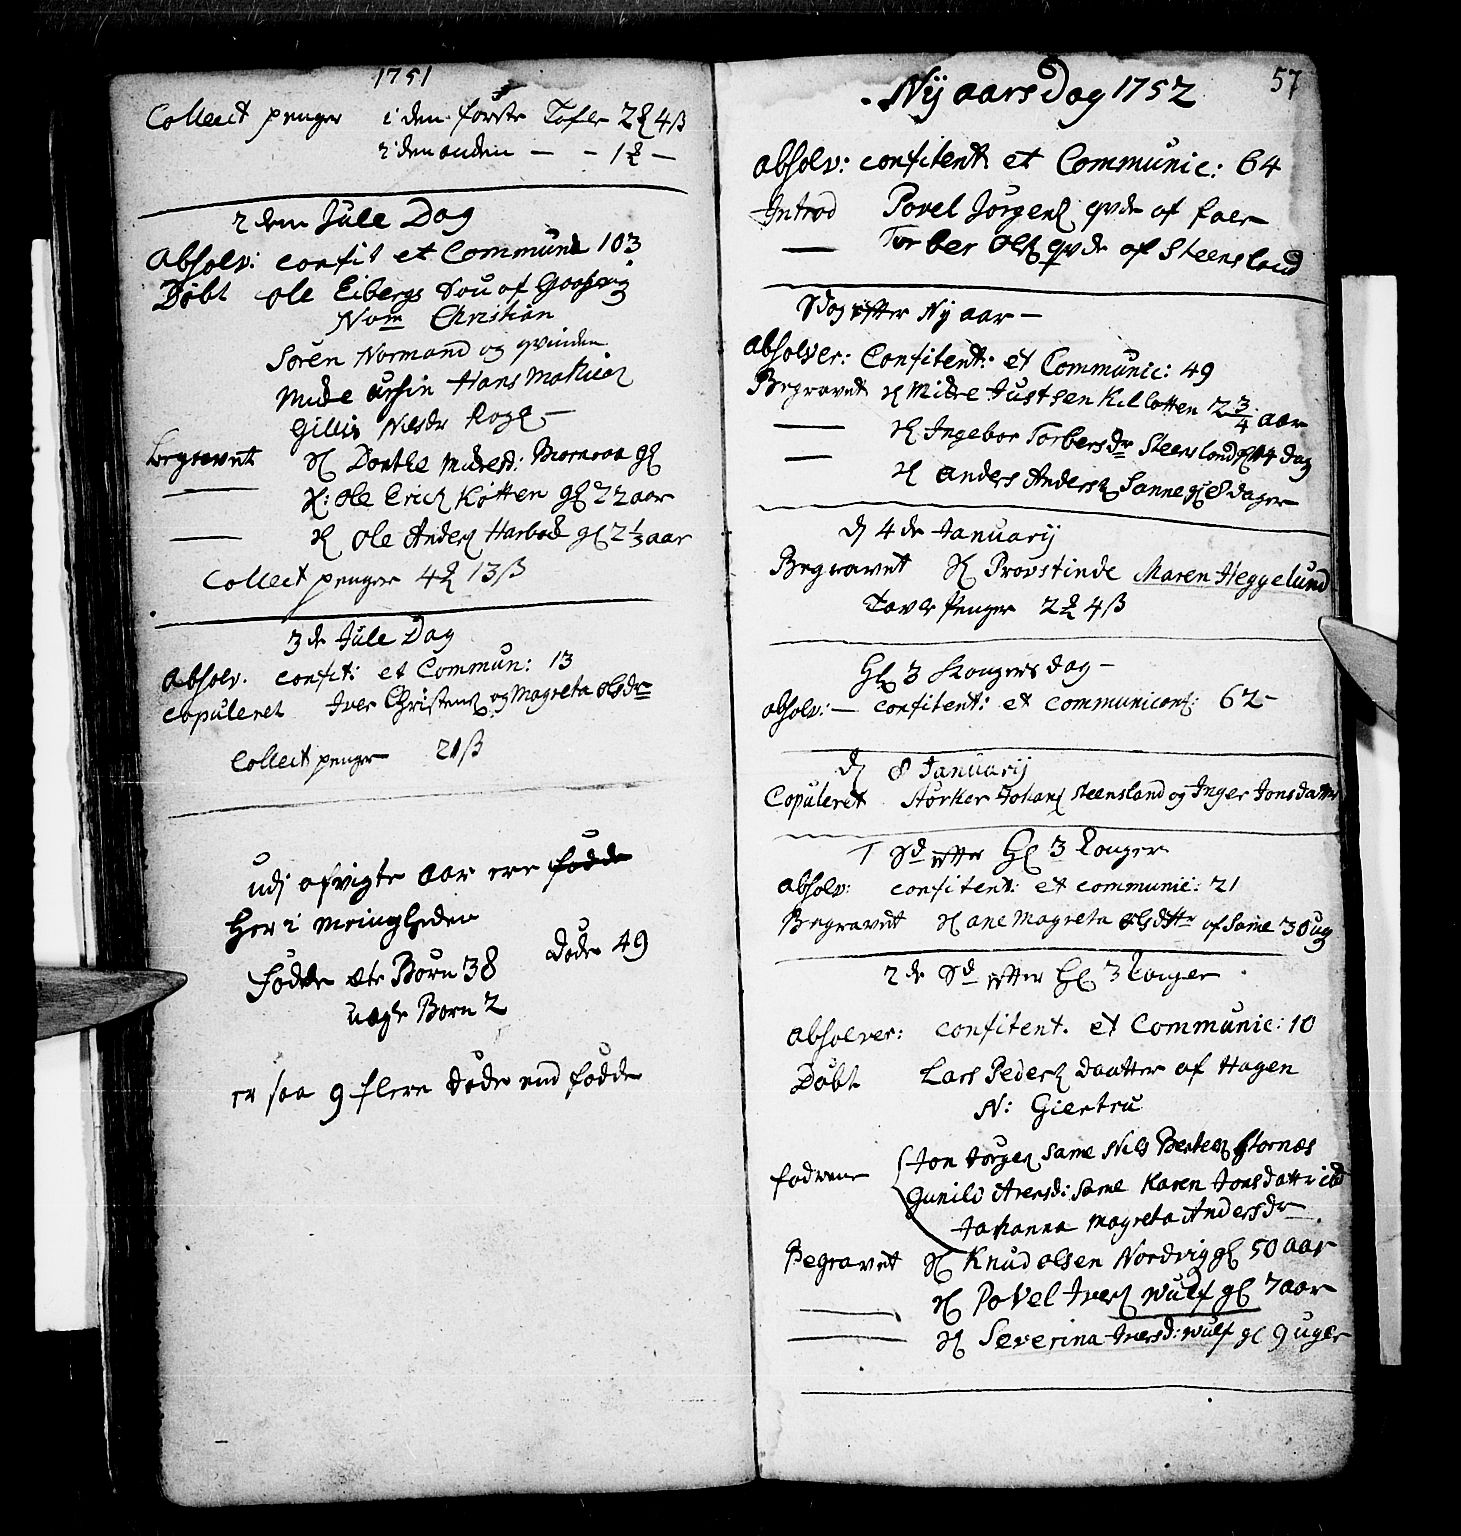 1751
Collect penger i den første Tafle 2 4 ß
i den anden — - 1 —
2 den Jule Dag
Absolv: confit et Commun 103
Døbt ole Eibergs Søn af
Nom Christian
Søren Normand og qvinden
Mide Hans Mathias
Gilliis Nilsdr
Begravet Dorthe Midesd:
— ole Erich Kotten gl 22 aar
— ole Anders Harbod gl 2 1/3 aar
Collect penger 4 13 ß
3 de Jule Dag
Absolv. confit: et Commun: 13
Copuleret Iver Christens og Magreta olsdr
Collect penger 21 ß
udj afvigte aar ere
Her i Meinigheden
fødde ete Børn 38 døde 49
uegte Børn 2
er saa 9 flere døde end fødde
57
Nÿ aars Dag 1752
Absolv: confitent et Communic: 64
Introd Povel Jørgens qvde af
— Torber ols qvde af Steensland
Sdag efter Nÿ aar —
Absolver: Confitent: et Communic: 49
Begravet Midre Justsen Killotten 2 3/4 aar
— Ingebor Torbersdr Steensland 14 dag
— Anders Anders Sanne gl 8 dager
d 4 de Januarij
Begravet Provstinde Maren Heggelund
Tavle Penger 2 4 ß
Hl 3 Kongers dag —
absolv: — confitent: et communicant: 62 -
d 8 Januarij
Copuleret Størker Johans Steensland og Inger Jonsdatter
1 Sd efter Hl 3 Konger
absolv: confitent: et communic: 21
Begravet ane Magreta olsdttr af Same 3 Uug
2 de Sd efter Hl 3 Konger
absolver: confitent. et Communic: 10
Døbt Lars Peders Daatter af Hagen
N: Giertru
fadrene Jon Jørgen Same Nils Bertels Stornæs
Gunild Iversd: Same Karen Jonsdattr ibd
Johanna Magreta Andersdr
Begravet Knud olsen Nordvig gl 50 aar
— Povel Ivers Wulf gl 7 aar
— Severina Iversd: Wulf gl 9 uger